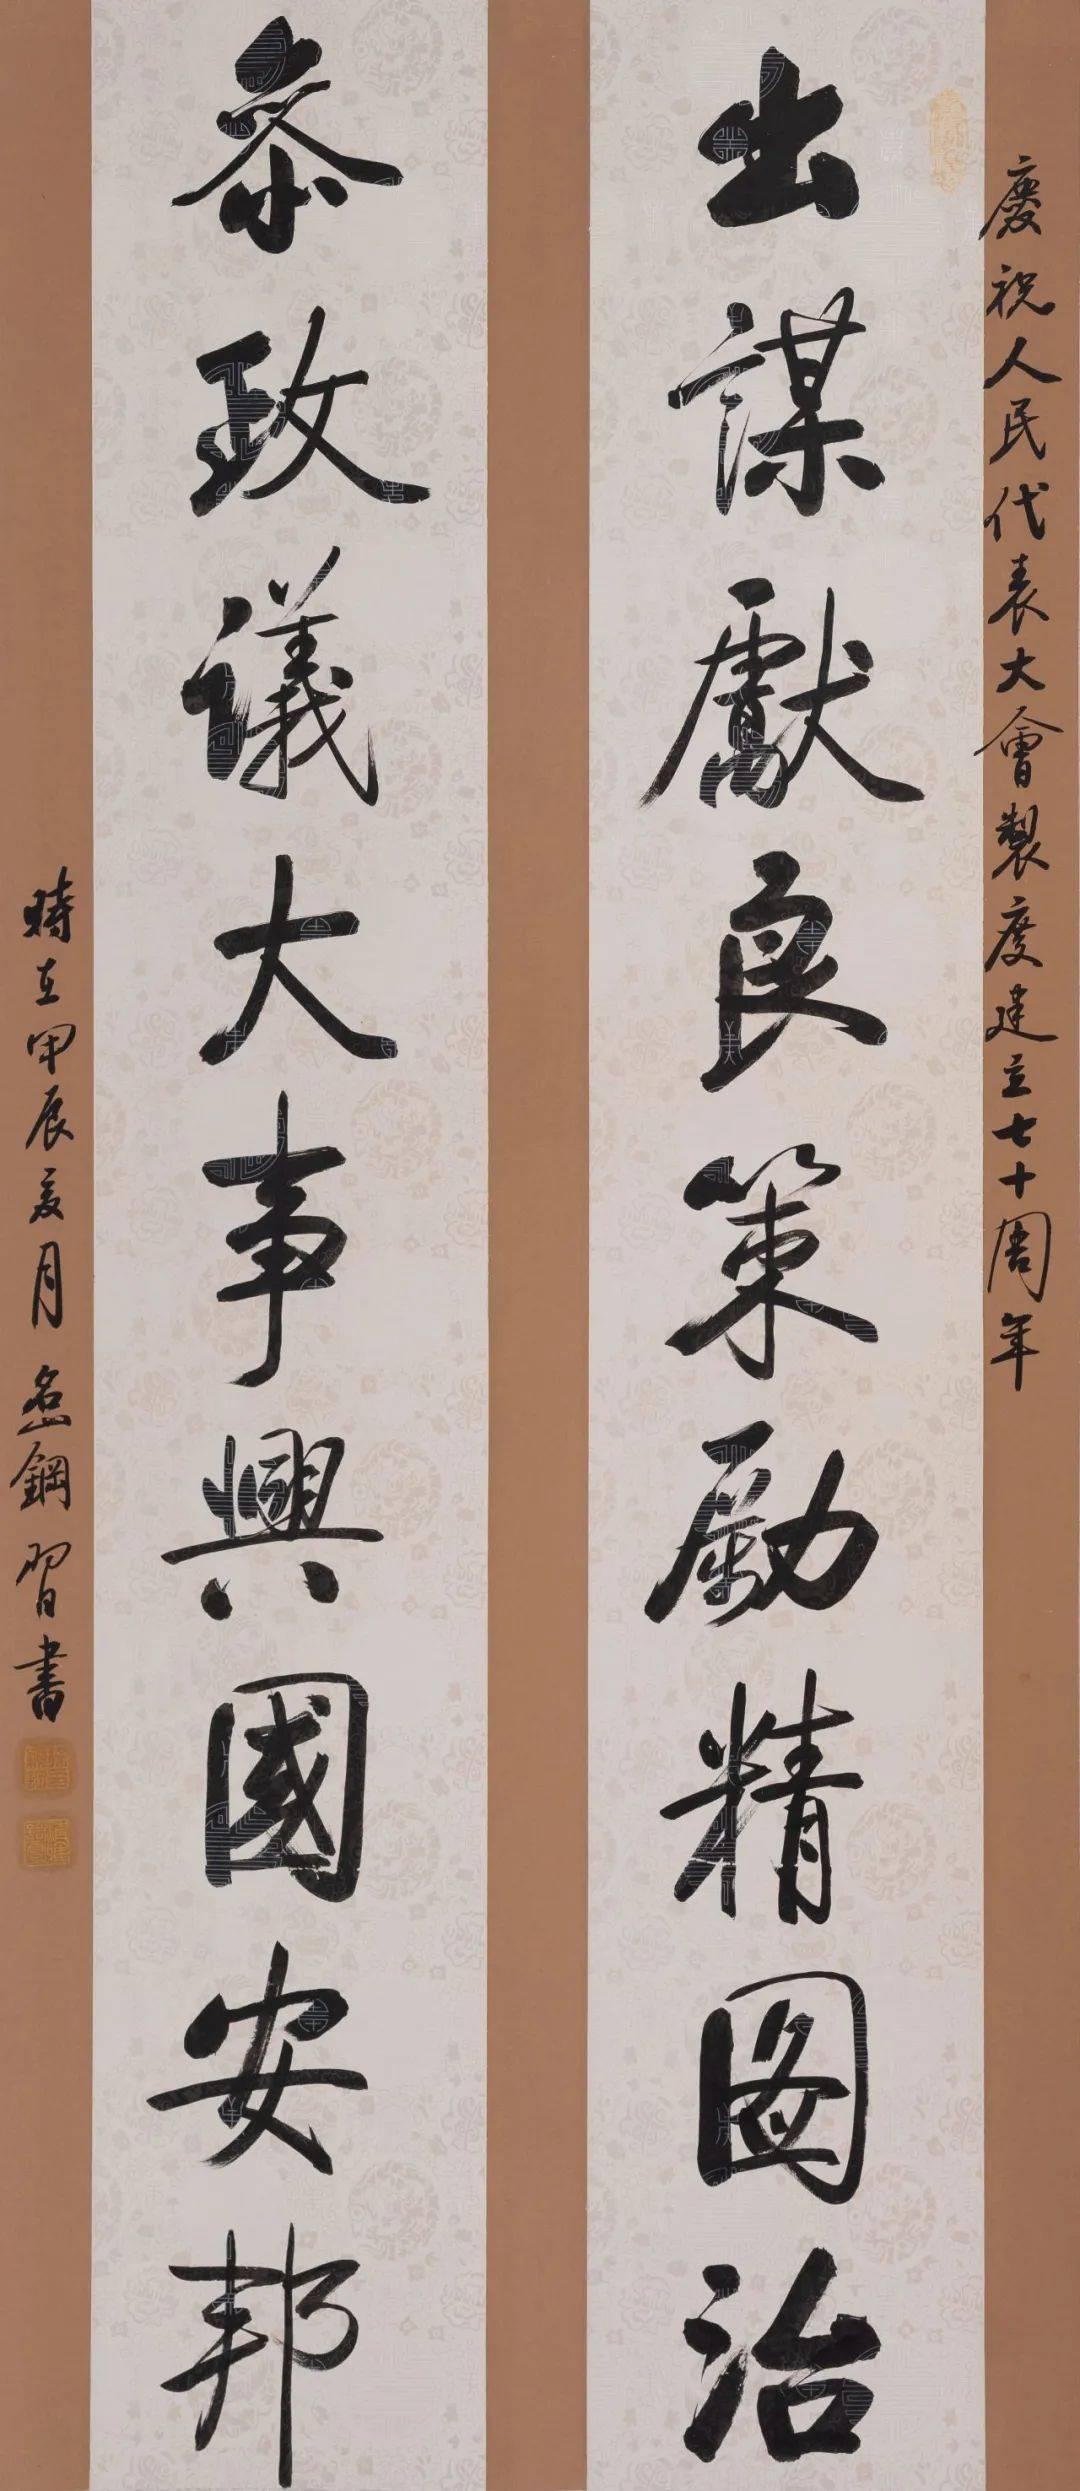 慶祝人民代表大會製度建立七十周年
出謀獻良策勵精图治
叅政議大事興國安邦
時在甲辰夏月 鋼習書